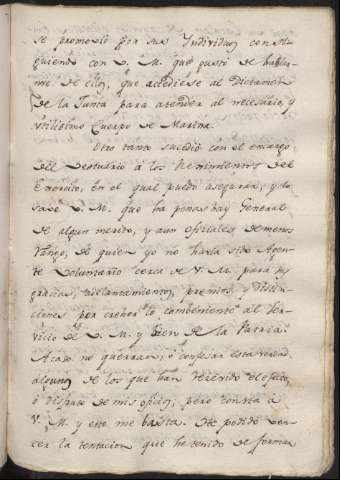 se promovió por sus Individuos consi-
guiendo con V. M. que gustó de hablar-
me de ellos, que accediese al Dictamen
de la Junta para atender al necesario, y
utilisimo Cuerpo de Marina.
Otro tanto sucedió con el encargo
del Vestuario à los Regimientos del
Exercito, en el qual puedo asegurar, y lo
save V. M. que ha penas hay General
de algun merito, y aun oficiales de menos
rango, de quien yo no haya sido Agen-
te Voluntario cerca de V. M. para sus
gracias, adelantamientos, premios, y distin-
ciones por creherlo combeniente al Ser-
vicio de V. M. y bien de la Patria.
Acaso no querran, ò confesar esta verdad
algunos de los que han tenido el efecto,
ò disfrute de mis oficios; pero consta à
V. M. y eso me basta. He podido ven-
cer la tentacion que he tenido de formar